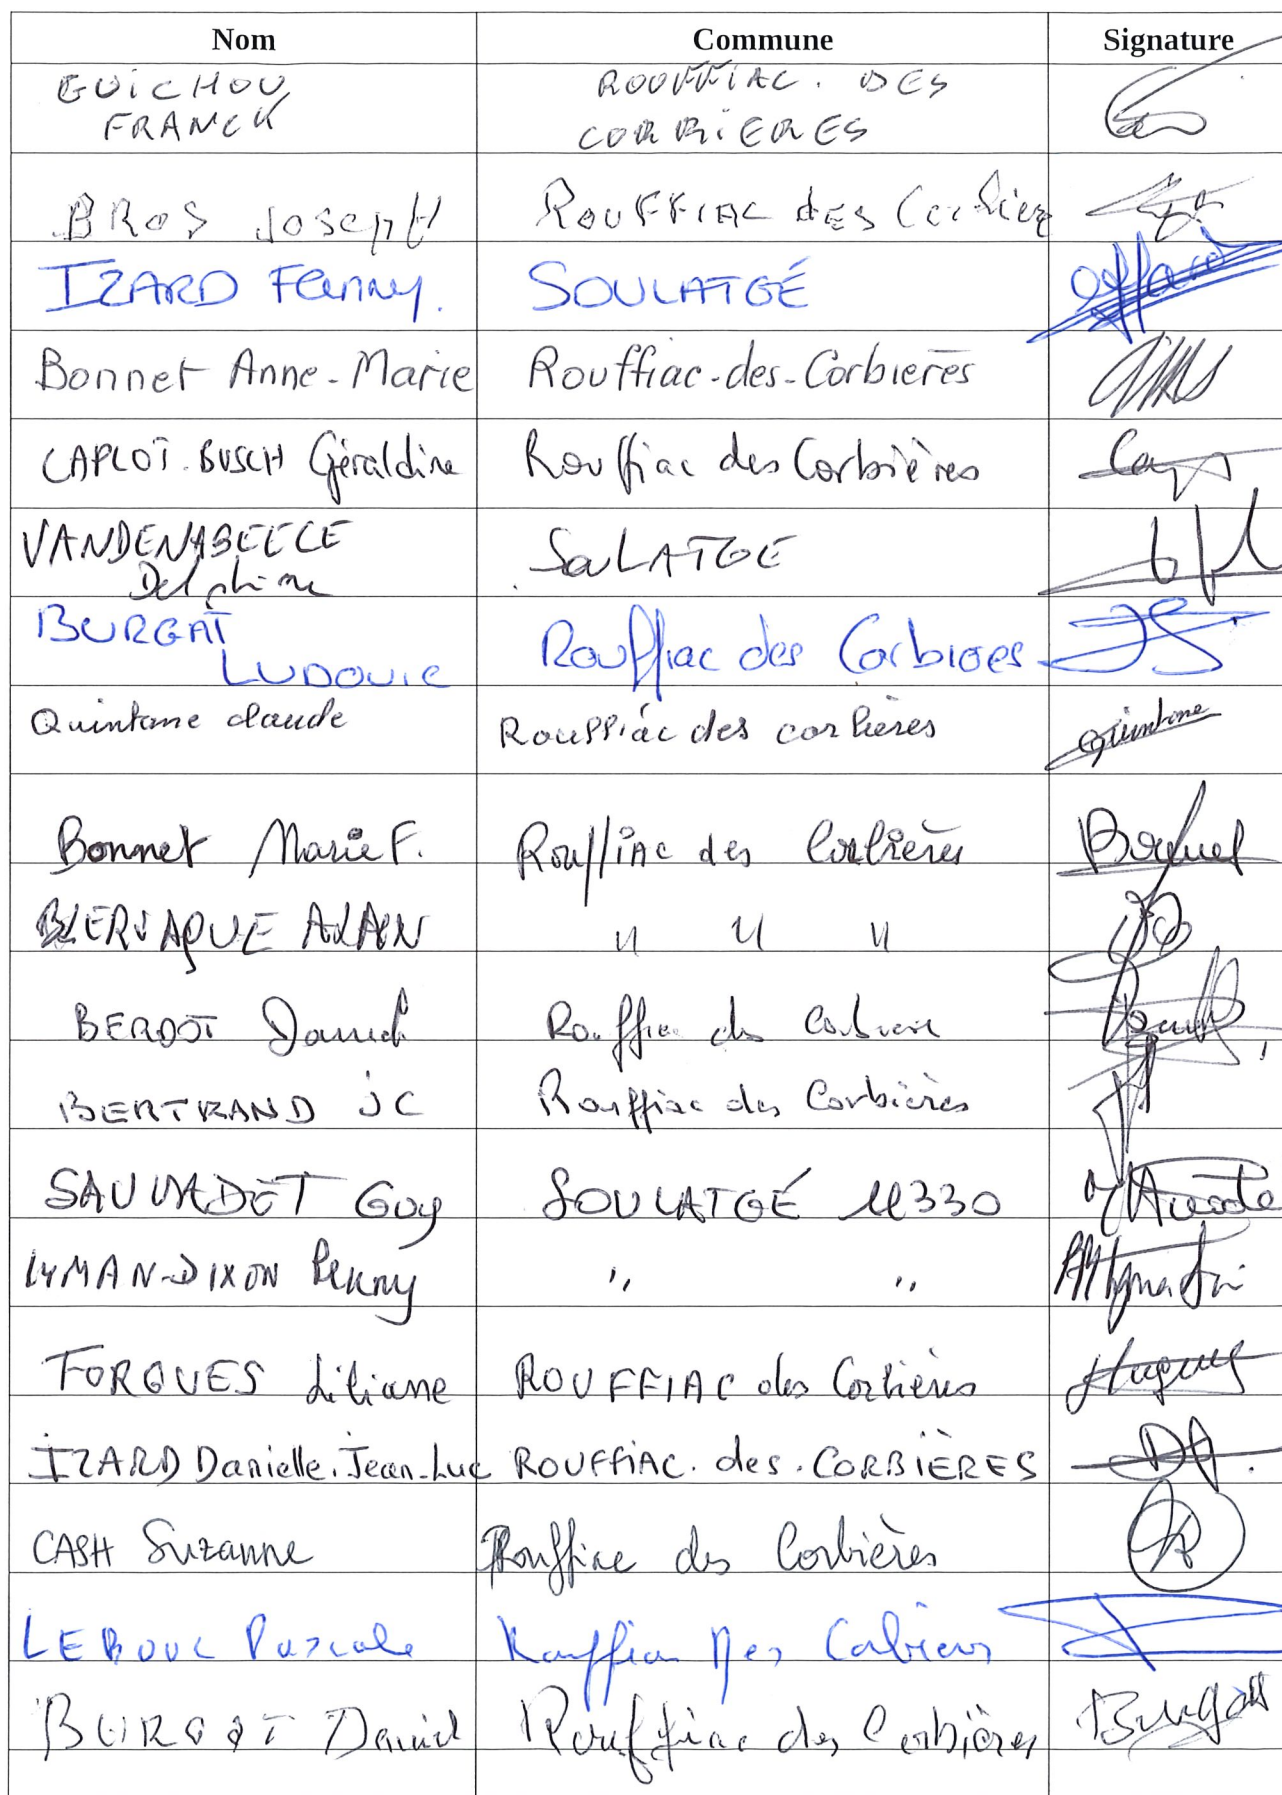 Nom Commune Signature
GUiCHOU ROUFFiAC. DES
FRANCK CORBiERES
BROS Joseph ROUFFIAC dES Corbier
IZARD Fanny. SOULATGÉ
Bonnet Anne-Marie Rouffiac-des-Corbières
CAPLOT.BUSCH Géraldine Rouffiac des Corbières
VANDENABEELE SouLATGE
Delphine
BURGAT Rouffiac des Corbieres
LUDOVIC
Quintane claude Rouffiac des corbières Quintane
Bonnet Marie F. Rouffiac des Corbières Bonnet
ALAIN " " "
BERDOT Daniel Rouffiac des Corbiere
BERTRAND JC Rouffiac des Corbières
SAUVADET Guy SOULATGÉ 11330
LYMAN-DIXON Penny " "
FORGUES Liliane ROUFFIAC des Corbières
IZARD Danielle.Jean-Luc ROUFFiAC.des.CORBIÈRES
CASH Suzanne Rouffiac des Corbières
LEBOUC Pascale Rouffiac Des Corbieres
BURGAT Daniel Rouffiac des Corbières Burgat